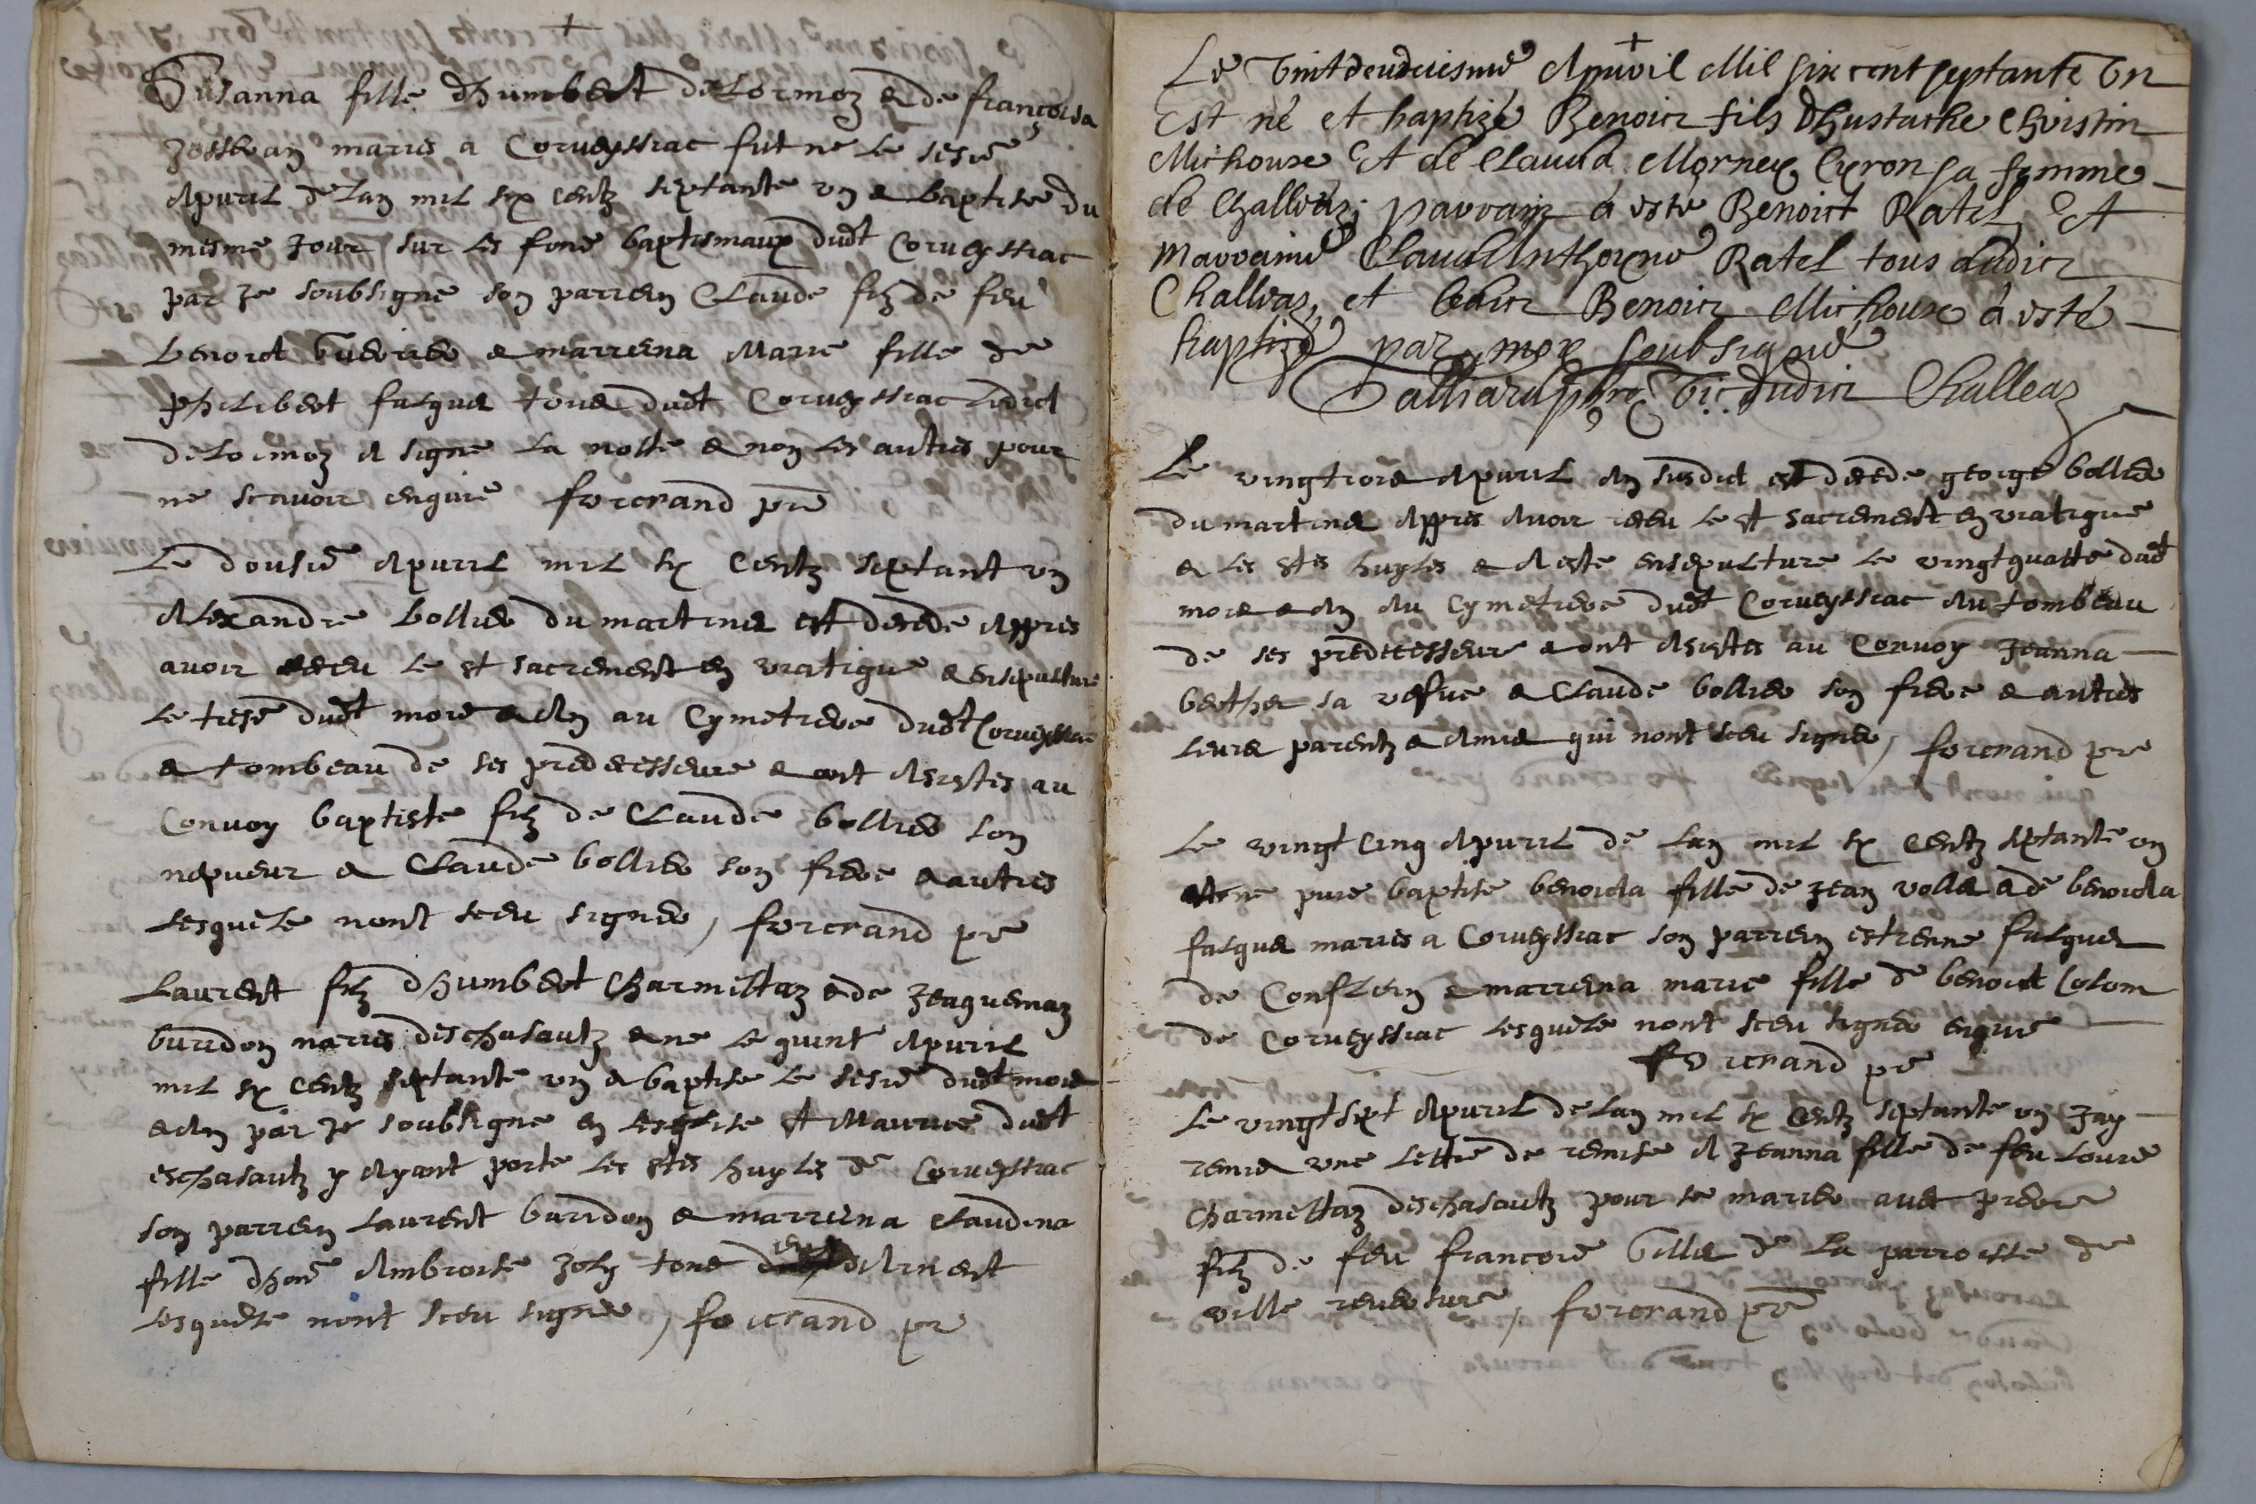 +
Susanna fille dhumbert delormoz & de francoisa
Josseran maries a Corveyssiac fut ne le sesie
Apvril de lan mil six centz septante un & baptise du
mesme Jour sur les fons baptismaux dudt Corveyssiac
par Je soubsigne son parrein Claude filz de feu
benoict & marreina Marie fille de
philibert falquet tous dudt Corveyssiac Ledict
delormoz A signe la notte & non les autres pour
ne scavoir enquis forcrand pre
Le dousie Apvril mil six Centz septant un
Alexandre bollier du martinet est decede Appres
avoir receu le st sacrement en viatique & ensepulture
le tresie dudt mois & An au Cymetiere dudt Corveyssiac
& tombeau de ses predecesseurs & ont Asistes au
Convoy baptiste filz de Claude bollier son
nepveur & Claude bollier son frere & autres
lesquels nont sceu signer, forcrand pre
Laurent filz dhumbert Charmettaz & de Jeaquemaz
buridon maries deschasautz & ne le quint Apvril
mil six Centz septante un & baptise le sesie dudt mois
& An par Je soubsigne en lesglise st Maurice dudt
eschasautz y Ayant porte les stes huyles de Corveyssiac
son parrein Laurent buridon & marreina Claudina
fille dhone Ambroise Joly tous dArinent
lesquels nont sceu signer, forcrand pre
+
Le Vint deuxiesme Apuvil Mil six cent septante Vn
Est né et baptizé Benoict fils dhustache Christin
Michoux Et de Claud. Mornex Cyron sa femme
de Challeaz; parrain a esté Benoict Ratel, Et
marraine Claud Anthoyne Ratel tous dudict
Challeaz, et ledict Benoict Michoux à esté
baptizé par moy soubsigné
Talliard pbre Vic. dudict Challeaz
Le vingtrois Apvril An susdict est decede george bollier
du martinet Appres Avoir receu le st sacrement en viatique
& les stes huyles & A este ensepulture le vingtquatte dudt
mois & An Au Cymetiere dudt Corveyssiac Au tombeau
de ses predecesseurs & ont Asistes au Convoy Jeanna
berthet sa vefve & Claude bollier son frere & autres
leurs parentz & Amis qui nont sceu signer, forcrand pre
Le vingt Cinq Apvril de lan mil six Centz septante un
baptise benoicta fille de Jean vollet & de benoicta
falquet maries a Corveyssiac son parrein estienne falquet
de Conflens & marreina marie fille de benoict Colom
de Corveyssiac lesquels nont sceu signer enquis
forcrand pre
Le vingtsept Apvril de lan mil six Centz septante un Jay
remis une lettre de remise A Jeanna fille de feu Louis
Charmettaz deschasautz pour se marier avet pierre
filz de feu francois billet de la parroisse de
ville reversure, forcrand pre